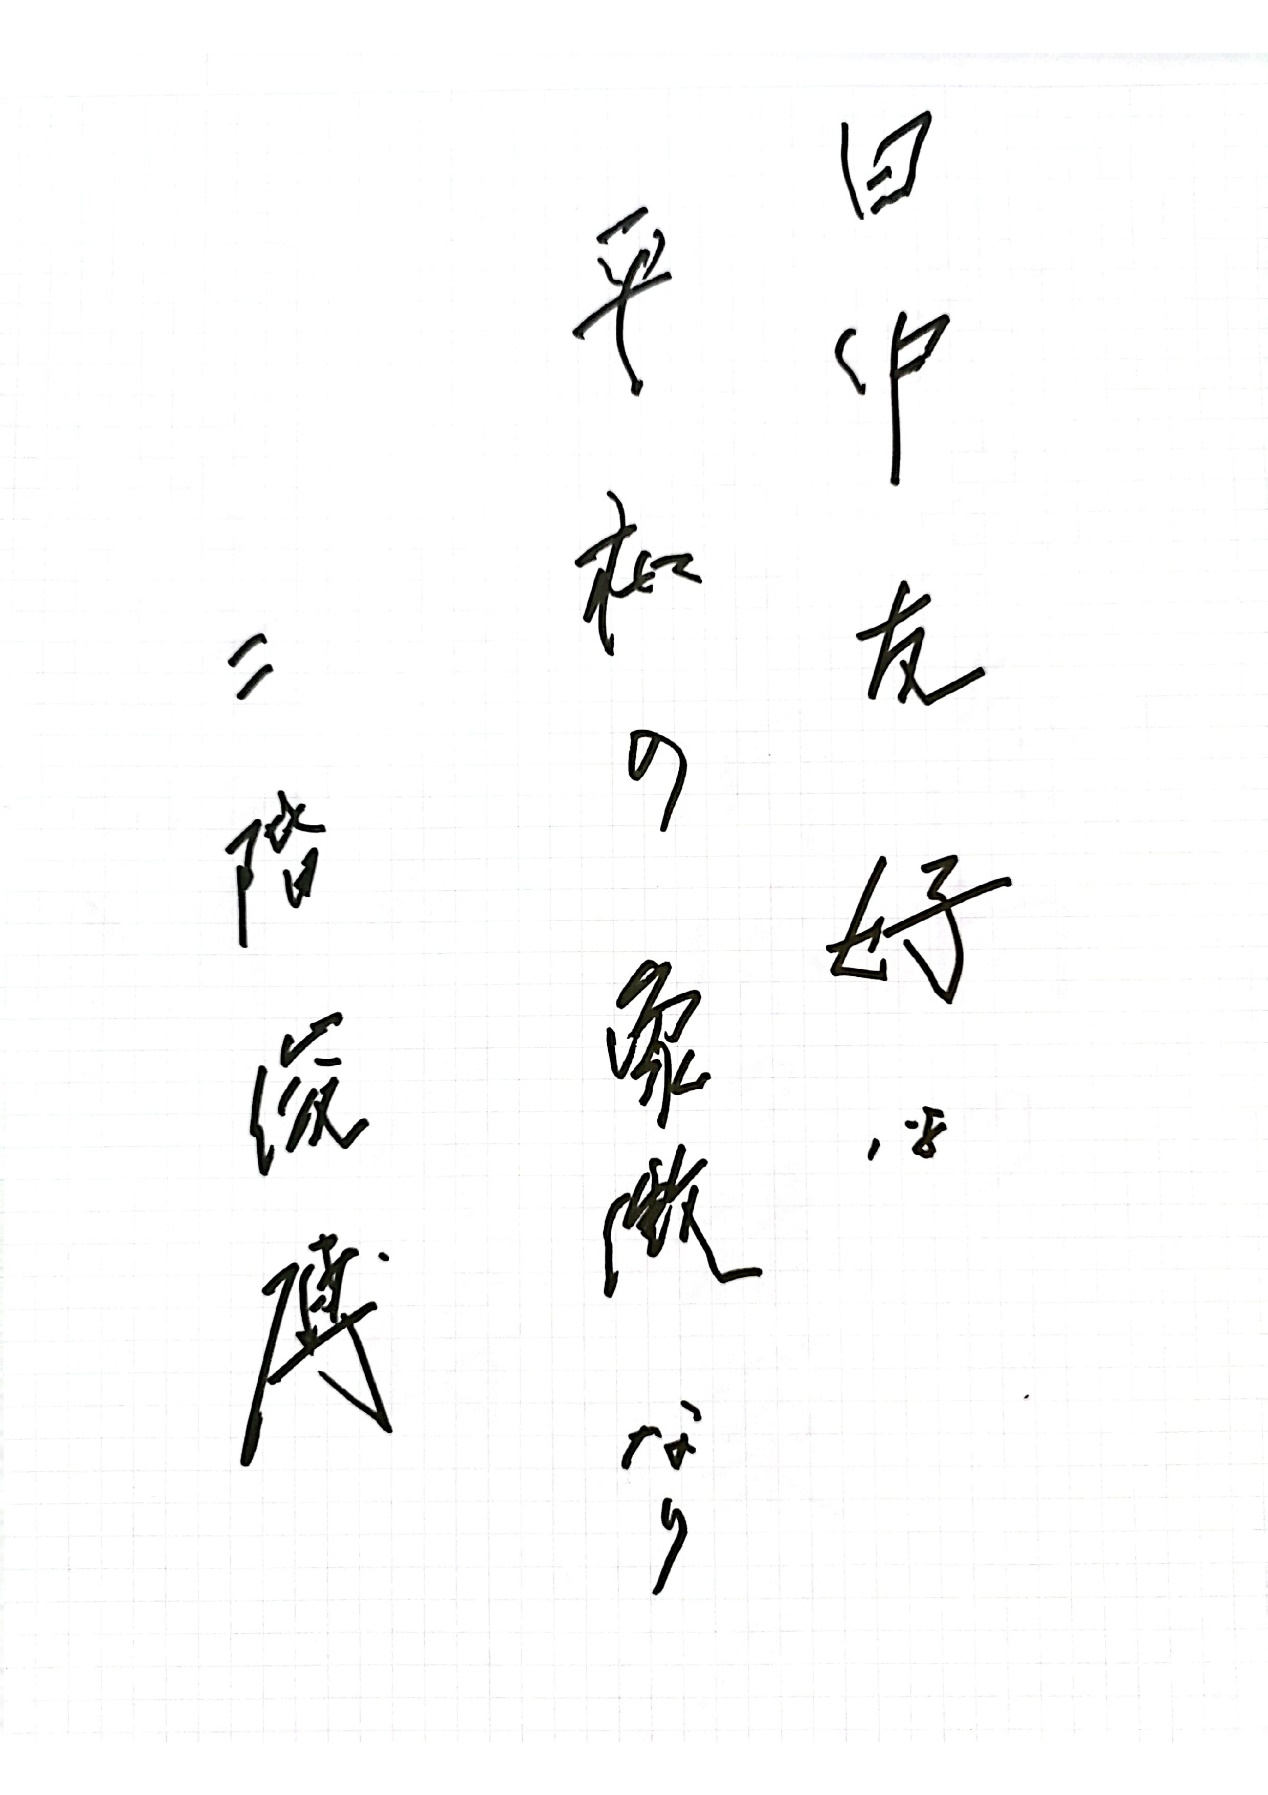 日中友好は
平和の象徴なり
二階俊博